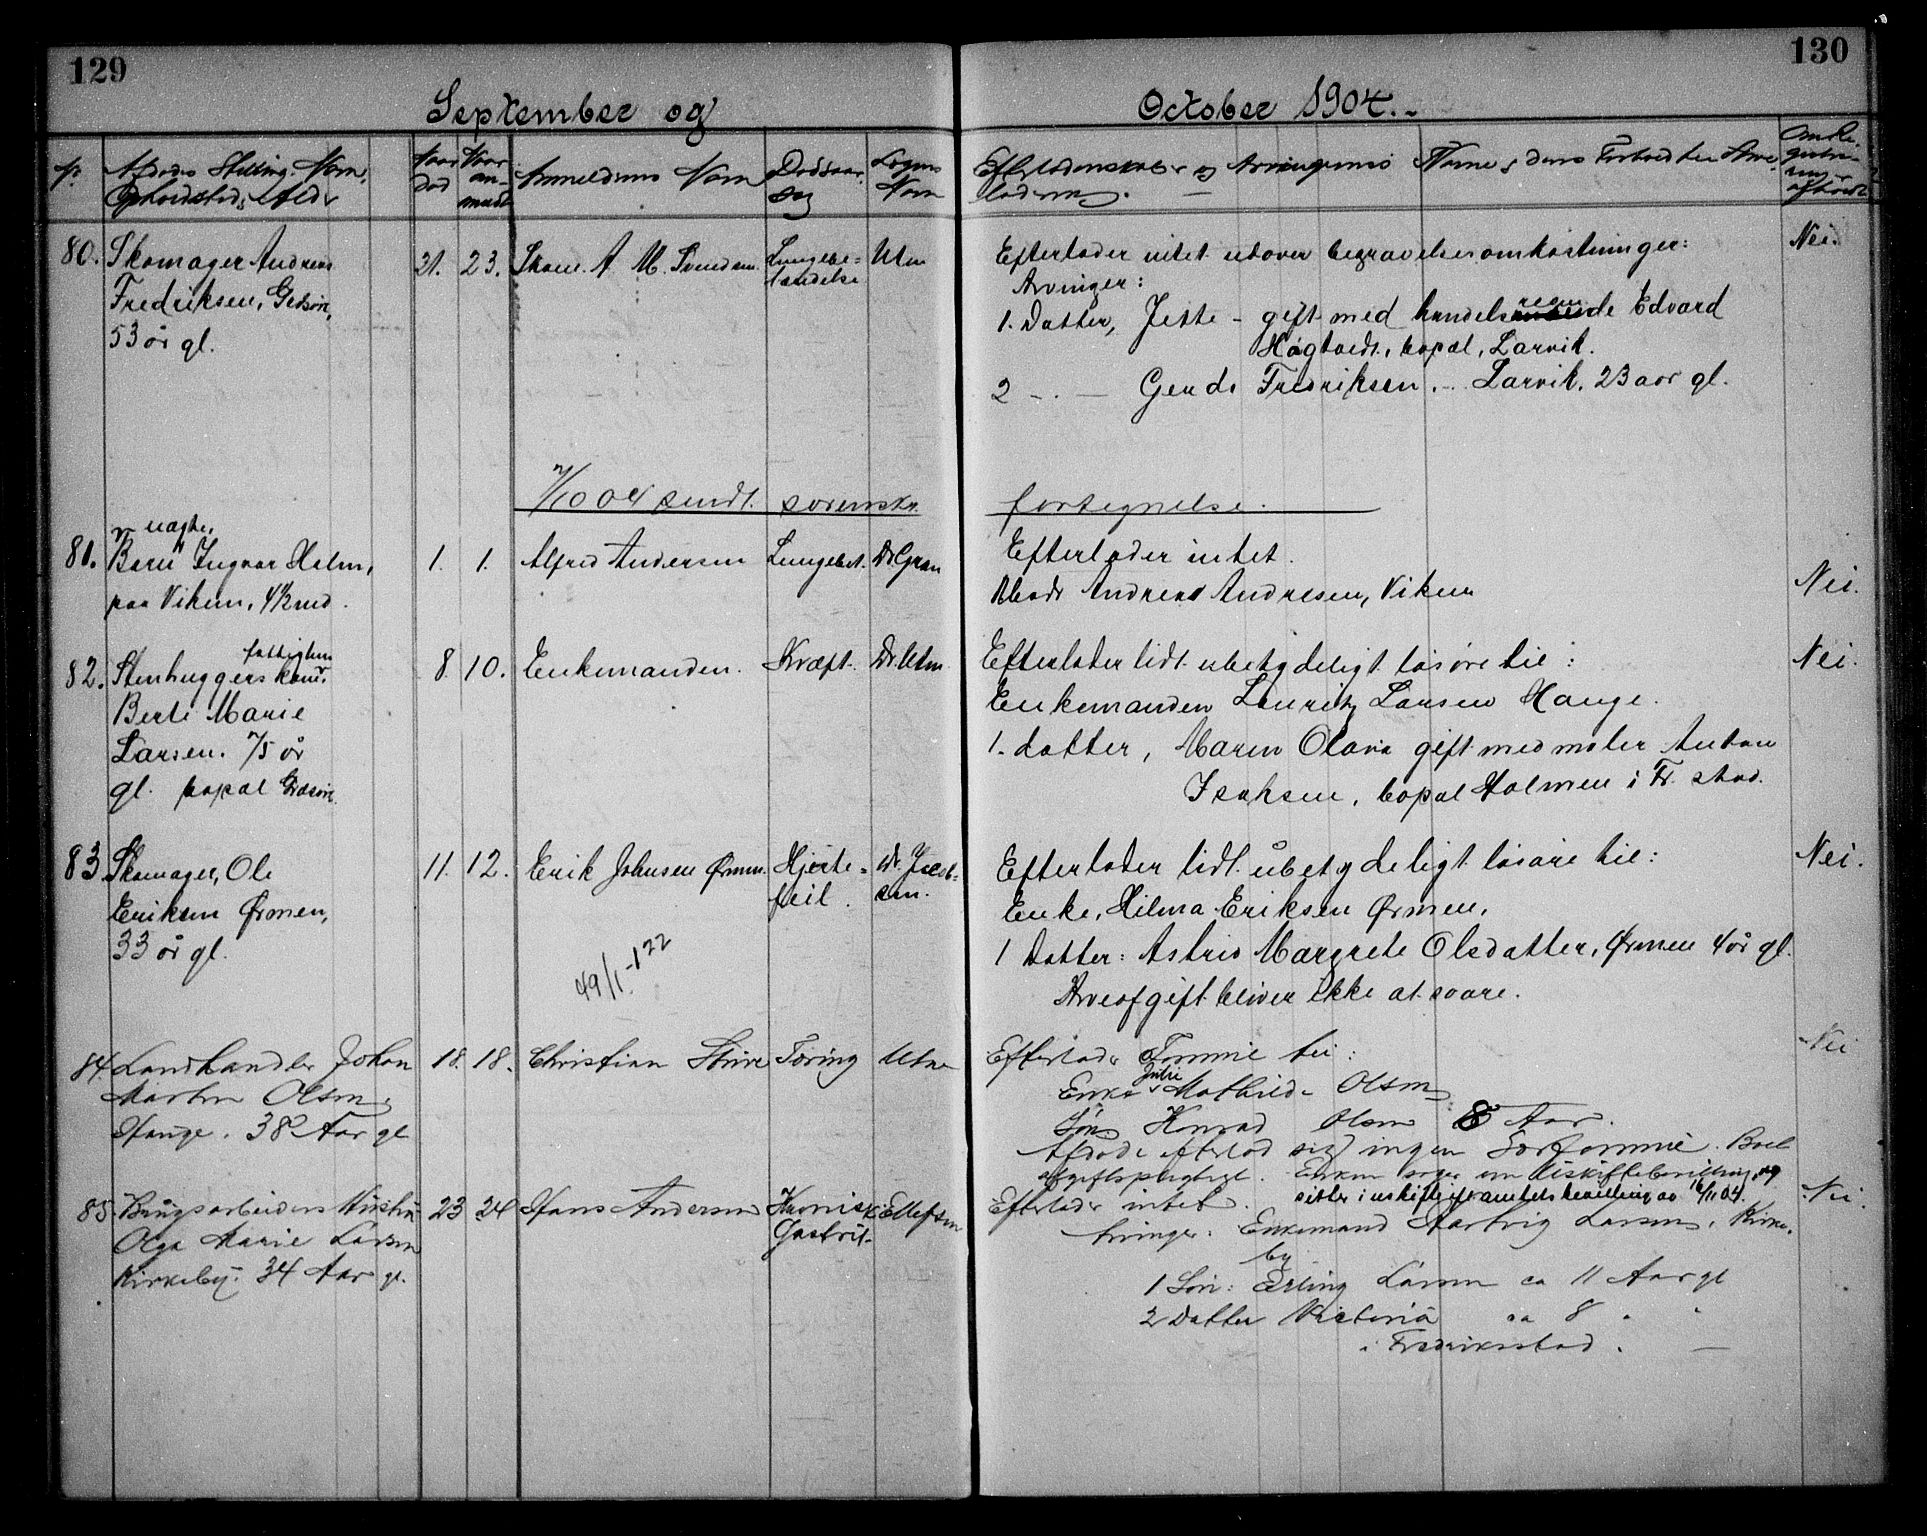 129
130
September og
October 1904.-
Nr.
Afdødes Stilling, Navn,
Opholdssted, Alder
Naar
død
Naar
an-
meldt
Anmelderens Navn
Dødsaar-
sag
Lægens
Navn
80.
Skomager Andreas
Fredriksen,
53 år gl.
21.
23.
Skom. A. M. Svendsen.
Lungebe-
tændelse
Utne
Efterlader intet udover begravelsesomkostninger:
Arvinger:
1. Datter, Jette - gift med handelsreisende Edvard
bopæl, Larvik.
2 -.- Fredriksen. - Larvik. 23 aar gl.
Nei.
7/10 04 sendt sorenskr.
fortegnelse.
81.
uægte
Barn Ingvar Holm,
paa Viken, 4½ md.
1.
1.
Alfred Andersen
Lungebet.
Dr. Gran
Efterlader intet.
Moder Andrea Andresen, Viken
Nei.
82.
fattiglem
Stenhuggerskone
Berte Marie
Larsen. 75 år
gl. bopæl
8.
10.
Enkemanden.
Kræft.
Dr. Utne.
Efterlader lidt ubetydeligt løsøre til:
Enkemanden Lauritz Larsen Hauge.
1. datter, Maren Olava gift med maler Anton
Isaksen, bopæl Holmen i Fr. stad.
Nei.
83
Skomager, Ole
Eriksen Ørmen,
33 år gl.
11.
12.
Erik Johnsen Ørmen.
Hjerte-
feil.
Dr. Jacob-
sen.
49/1-122
Efterlader lidt ubetydeligt løsøre til:
Enke, Hilma Eriksen Ørmen,
1 Datter: Astrid Margrete Olsdatter, Ørmen 4 år gl.
Arveafgift bliver ikke at svare.
Nei.
84.
Landhandler Johan
Martin Olsen,
Hauge. 38 Aar gl
18.
18.
Christian
Tæring
Utne
Efterlader Formue til:
Julie
Enke Mathilde Olsen
Søn Konrad Olsen 8 Aar.
Afdøde efterlod sig ingen Særformue. Boet
afgiftspligtigt. Enken søger om Uskiftebevilling og
sitter i uskifte if. amtets bevilling av 16/11 04.
Nei
85.
Brugsarbeiders Hustru
Olga Marie Larsen
Kirkeby. 34 Aar gl.
23
24
Hans Andersen
Kronisk
Gastrit.
Ellefsen
Efterlader intet.
Arvinger: Enkemand Hartvig Larsen, Kirke-
by
1 Søn: Erling Larsen ca 11 Aar gl
2 Datter Victoria ca 8 " "
i Fredriksstad.
Nei.